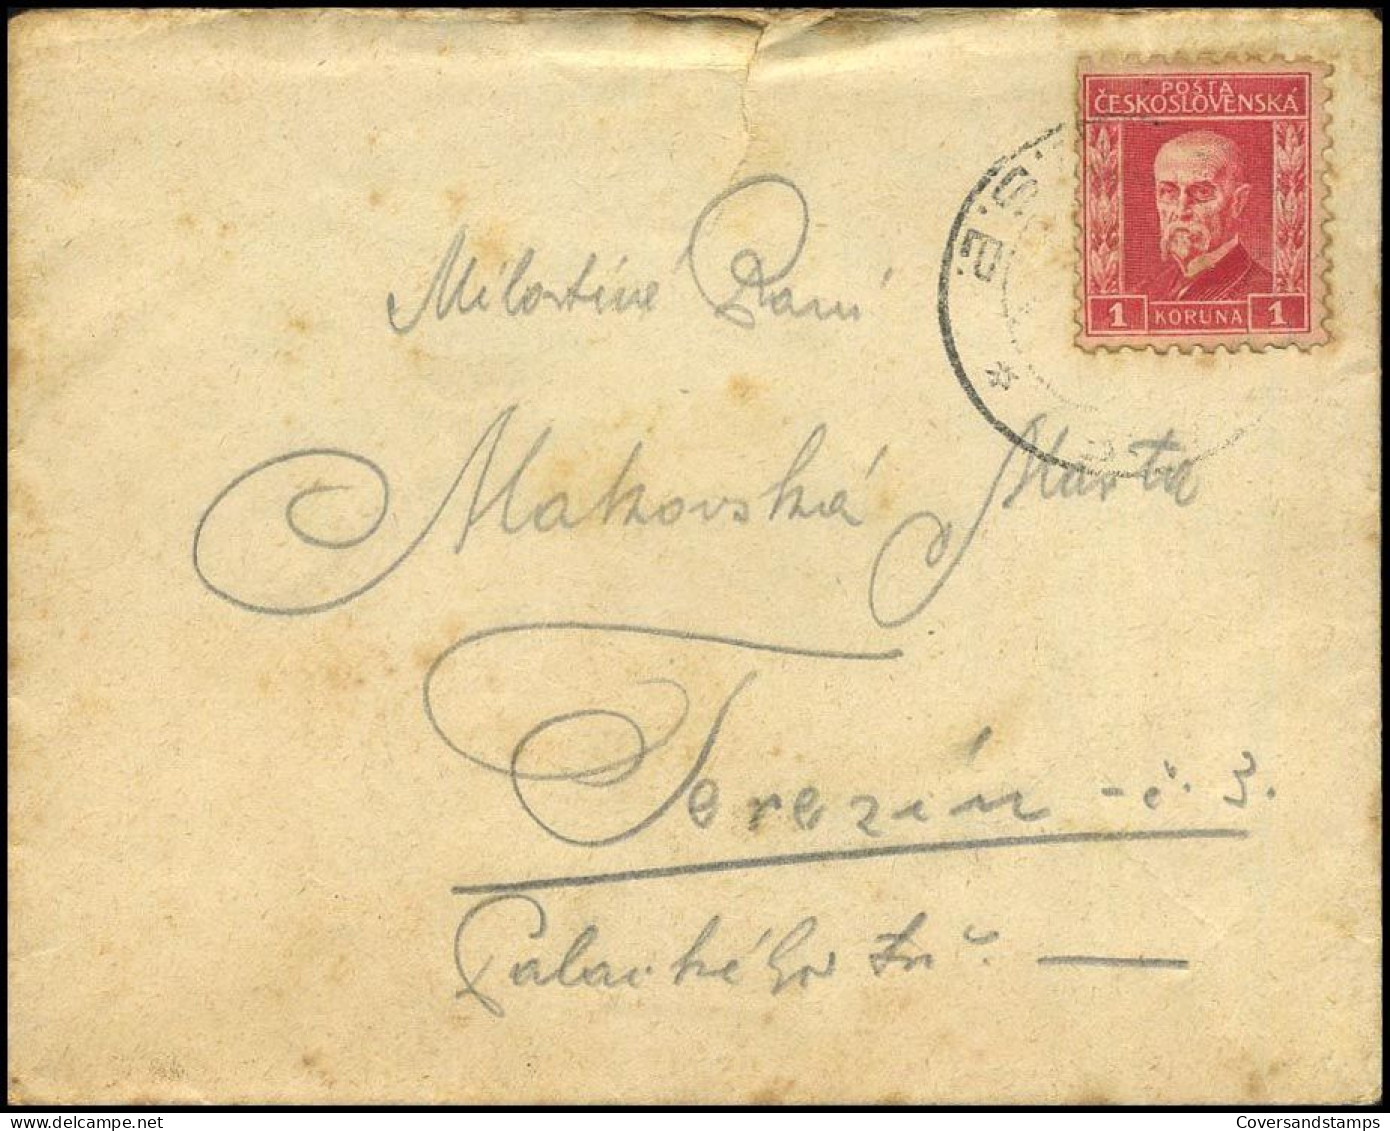 POŠTA
ČESKOSLOVENSKÁ
1 KORUNA 1
Milostivé Paní
Makovská Marta
Terezín - č. 3.
Palackého
Coversandstamps